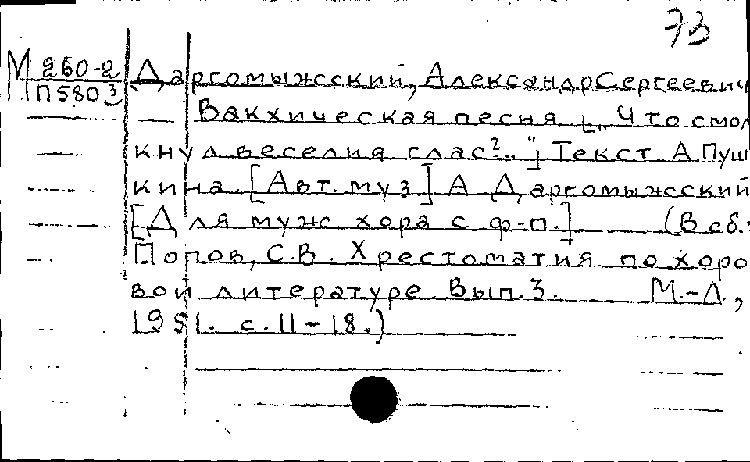 73
М 260-2
П580 3
Даргомыжсский, Александр Сергеевич
Вакхическая песня [„Что смол
кнул веселия глас?.."] Текст А.Пуш
кина. [Авт. муз.] А. Даргомыжсский
[Для муж хора с ф-п.] (В сб.:
Попов, С.В. Хрестоматия по хоро
вой литературе. Вып. 3. М.-Л.,
1951. с. 11-18.)